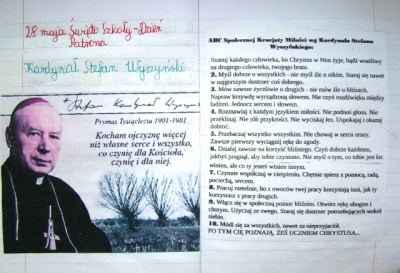 28 maja Święto Szkoły-Dzień
Patrona
Kardynał Stefan Wyszyński
+ Stefan Kardynał Wyszyński
Prymas Tysiąclecia 1901-1981
Kocham ojczyznę więcej
niż własne serce i wszystko,
co czynię dla Kościoła,
czynię i dla niej.
ABC Społecznej Krucjaty Miłości wg Kardynała Stefana
Wyszyńskiego:
Szanuj każdego człowieka, bo Chrystus w Nim żyje, bądź wrażliwy
na drugiego człowieka, twojego brata.
2. Myśl dobrze o wszystkich - nie myśl źle o nikim. Staraj się nawet
w najgorszym dostrzec coś dobrego.
3. Mów zawsze życzliwie o drugich - nie mów źle o bliźnich.
Napraw krzywdę wyrządzoną słowem. Nie czyń rozdźwięku między
ludźmi. Jednocz sercem i słowem.
4. Rozmawiaj z każdym językiem miłości. Nie podnoś głosu. Nie
przeklinaj. Nie rób przykrości. Nie wyciskaj łez. Uspokajaj i okazuj
dobroć.
5. Przebaczaj wszystko wszystkim. Nie chowaj w sercu urazy.
Zawsze pierwszy wyciągnij rękę do zgody.
6. Działaj zawsze na korzyść bliźniego. Czyń dobrze każdemu,
jakbyś pragnął, aby tobie czyniono. Nie myśl o tym, co tobie jest kto
winien, ale co ty jesteś winien innym.
7. Czynnie współczuj w cierpieniu. Chętnie spiesz z pomocą, radą,
pociechą, sercem.
8. Pracuj rzetelnie, bo z owoców twej pracy korzystają inni, jak ty
korzystasz z pracy drugich.
9. Włącz się w społeczną pomoc bliźnim. Otwórz rękę ubogim i
chorym. Użyczaj ze swego. Staraj się dostrzec potrzebujących wokół
siebie.
10. Módl się za wszystkich, nawet za nieprzyjaciół.
PO TYM CIĘ POZNAJĄ, ŻEŚ UCZNIEM CHRYSTUSA...